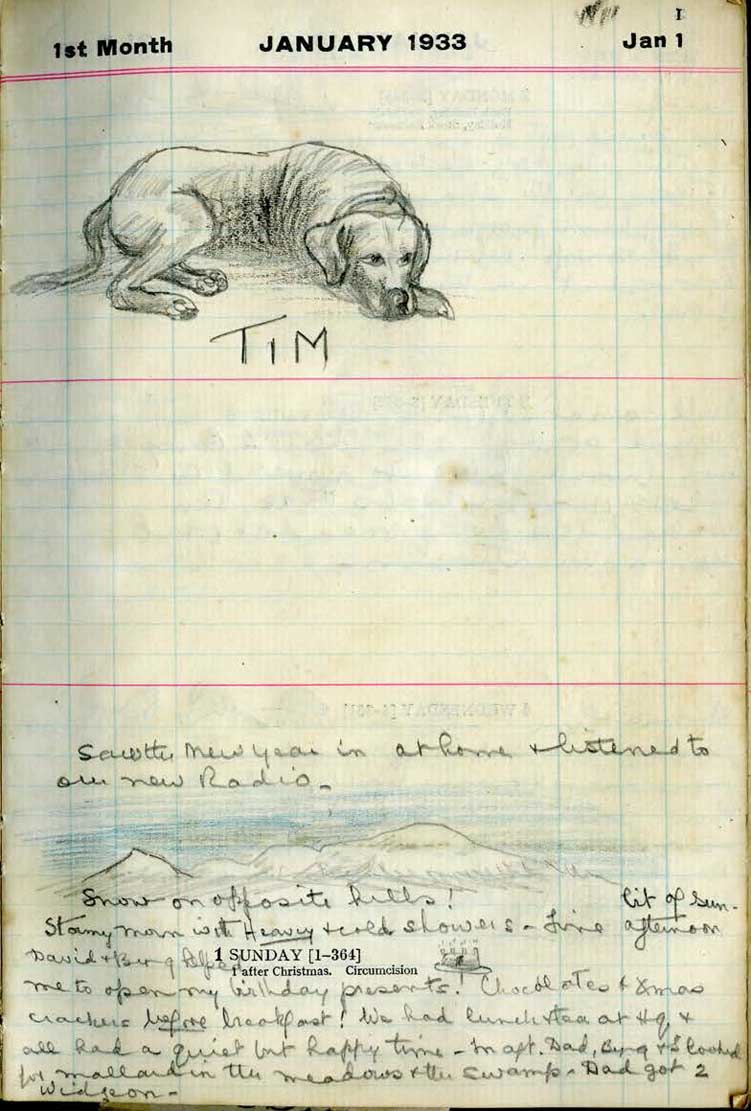 1
1st Month JANUARY 1933 Jan 1
TIM
Saw the New year in at home & listened to
our new Radio -
Snow on opposite hills!
bit of Sun -
Stormy morn with Heavy & cold showers - Fine afternoon
David & helped
1 SUNDAY [1-364]
1 after Christmas. Circumcision
me to open my birthday presents! Chocolates & Xmas
crackers before breakfast! We had lunch & tea at Hq &
all had a quiet but happy time - In aft. Dad, & I looked
for mallard in the meadows & the swamp - Dad got 2
Widgeon -